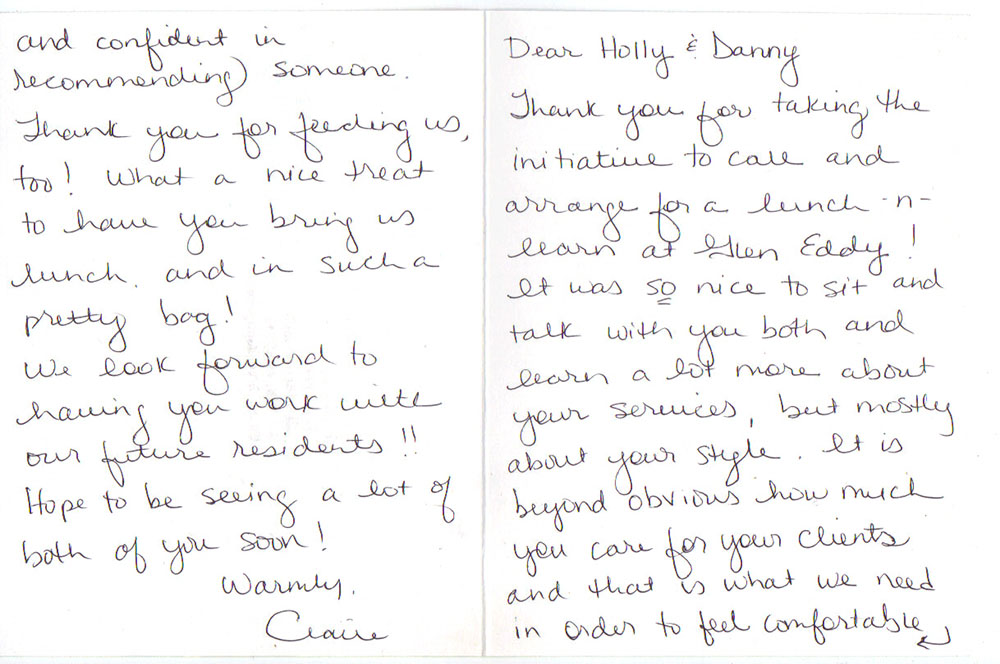 Dear Holly & Danny
Thank you for taking the
initiative to call and
arrange for a lunch-n-
learn at Glen Eddy!
It was so nice to sit and
talk with you both and
learn a lot more about
your services, but mostly
about your style. It is
beyond obvious how much
you care for your clients
and that is what we need
in order to feel comfortable
and confident in
recommending) someone.
Thank you for feeding us,
too! What a nice treat
to have you bring us
lunch. and in such a
pretty bag!
We look forward to
having you work with
our future residents!!
Hope to be seeing a lot of
both of you soon!
Warmly,
Claire